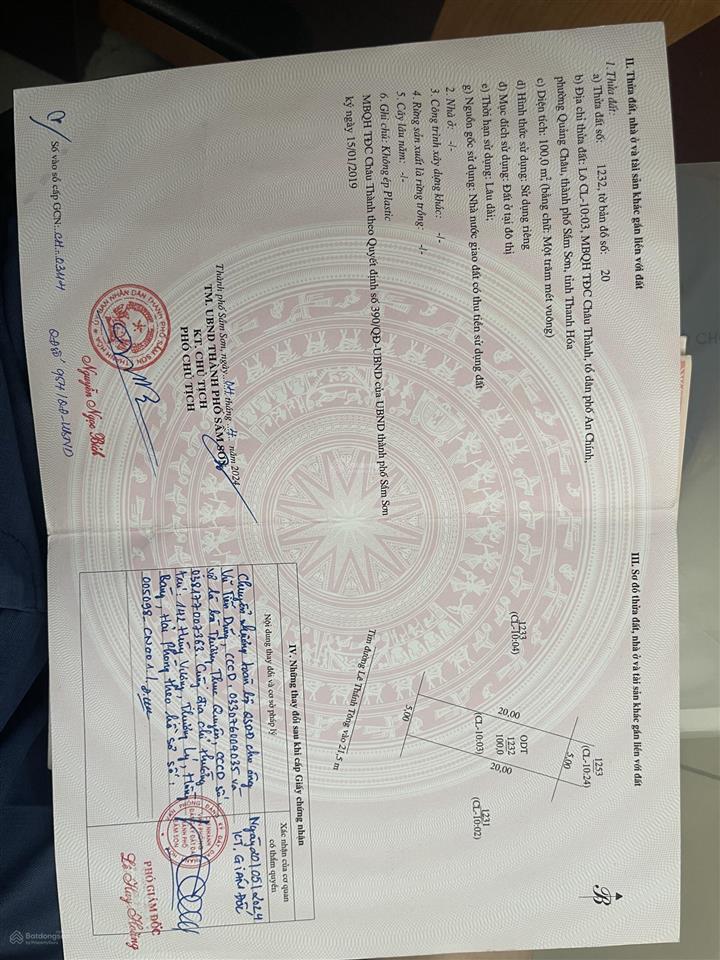 II. Thửa đất, nhà ở và tài sản khác gắn liền với đất
1. Thửa đất:
a) Thửa đất số: 1232, tờ bản đồ số: 20
b) Địa chỉ thửa đất: Lô CL-10:03, MBQH TĐC Châu Thành, tổ dân phố An Chính,
phường Quảng Châu, thành phố Sầm Sơn, tỉnh Thanh Hóa
c) Diện tích: 100,0 m², (bằng chữ: Một trăm mét vuông)
d) Hình thức sử dụng: Sử dụng riêng
đ) Mục đích sử dụng: Đất ở tại đô thị
e) Thời hạn sử dụng: Lâu dài;
g) Nguồn gốc sử dụng: Nhà nước giao đất có thu tiền sử dụng đất
2. Nhà ở: -/-
3. Công trình xây dựng khác: -/-
4. Rừng sản xuất là rừng trồng: -/-
5. Cây lâu năm: -/-
6. Ghi chú: Không ép Plastic
MBQH TĐC Châu Thành theo Quyết định số 390/QĐ-UBND của UBND thành phố Sầm Sơn
ký ngày 15/01/2019
Thành phố Sầm Sơn, ngày 04 tháng 4 năm 2024
TM. UBND THÀNH PHỐ SẦM SƠN
KT. CHỦ TỊCH
PHÓ CHỦ TỊCH
Nguyễn Ngọc Biên
Số vào sổ cấp GCN: CH: 03144
III. Sơ đồ thửa đất, nhà ở và tài sản khác gắn liền với đất
B
1253
(CL-10:24)
5,00
1233
(CL-10:04)
20,00
ODT
1232
100,0
(CL-10:03)
20,00
1231
(CL-10:02)
5,00
Tim đường Lê Thánh Tông vào 21,5 m
IV. Những thay đổi sau khi cấp Giấy chứng nhận
Nội dung thay đổi và cơ sở pháp lý
Xác nhận của cơ quan
có thẩm quyền
Chuyển nhượng toàn bộ QSDĐ cho ông
Vũ Tiến Dũng, CCCD, 033076004035 và
vợ là bà Thường Thục Quyên, CCCD số
038177007363. Cùng địa chỉ thường
trú: 142 Hùng Vương, Thượng Lý, Hồng
Bàng, Hải Phòng theo hồ sơ số:
005098.CN001.
Ngày 20/05/2024
KT. GIÁM ĐỐC
PHÓ GIÁM ĐỐC
Lê Huy Hoàng
Batdongsan
by PropertyGuru